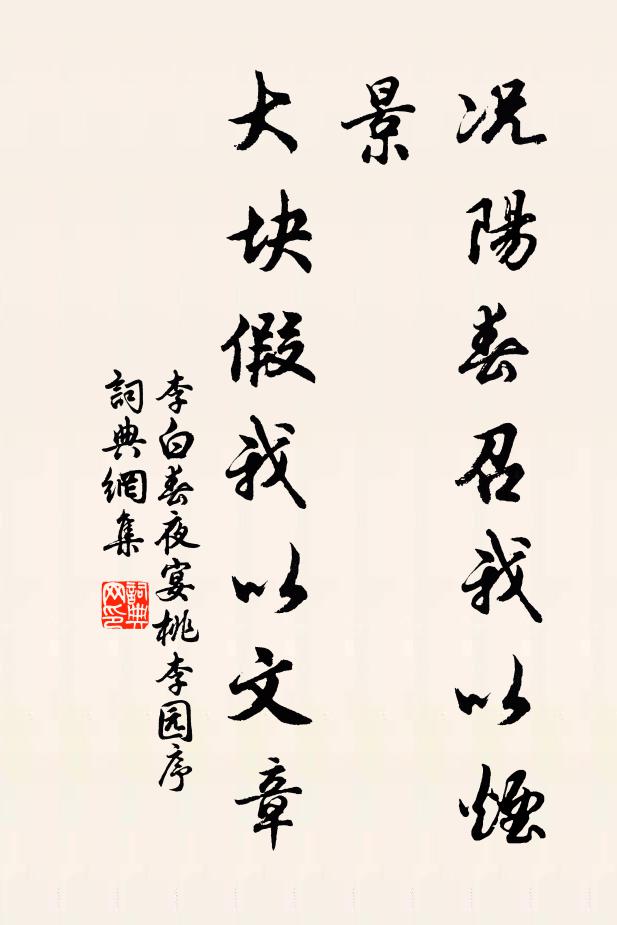 况陽春召我以煙
景
大块假我以文章
李白春夜宴桃李园序
詞典網集
詞典
网印